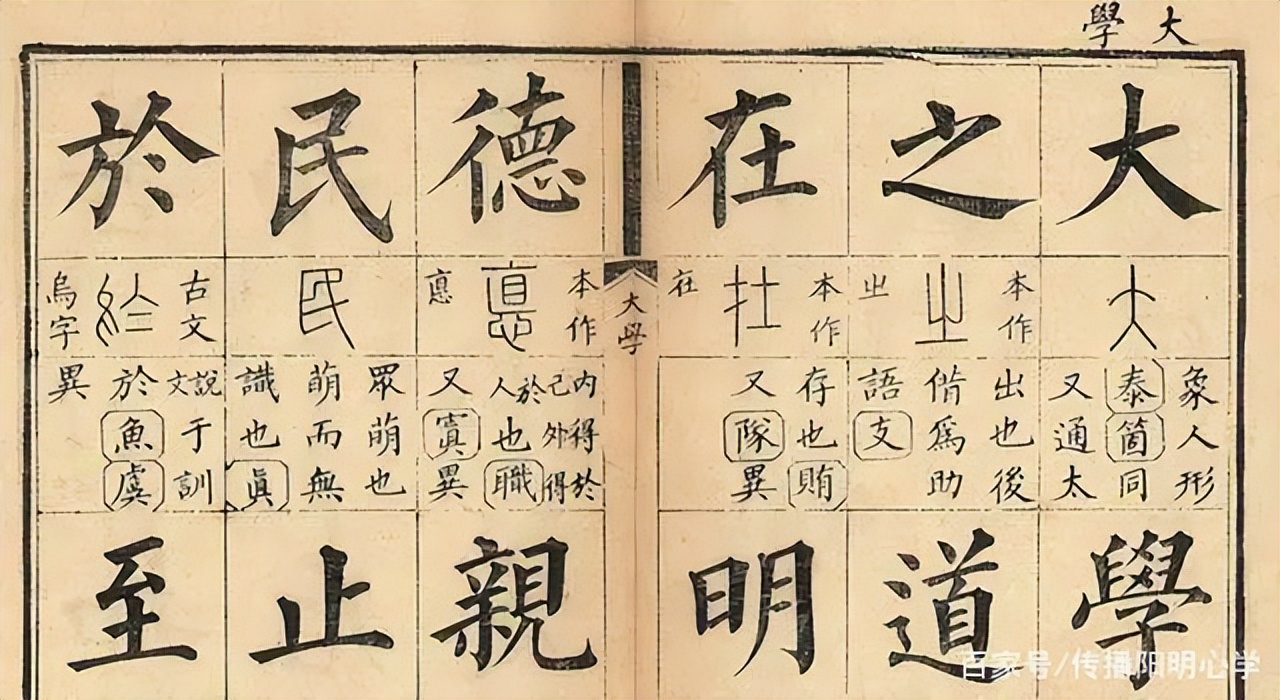 大學
大
象人形
泰箇同
又通太
學
之
本作
㞢
出也後
借爲助
語支
道
在
本作
在
存也賄
又隊異
明
大學
德
本作
悳
内得於
己外得
於人也職
又寘異
親
民
民
眾萌也
萌而無
識也眞
止
於
古文
烏字
說文于訓
於魚虞
異
至
百家号/传播阳明心学